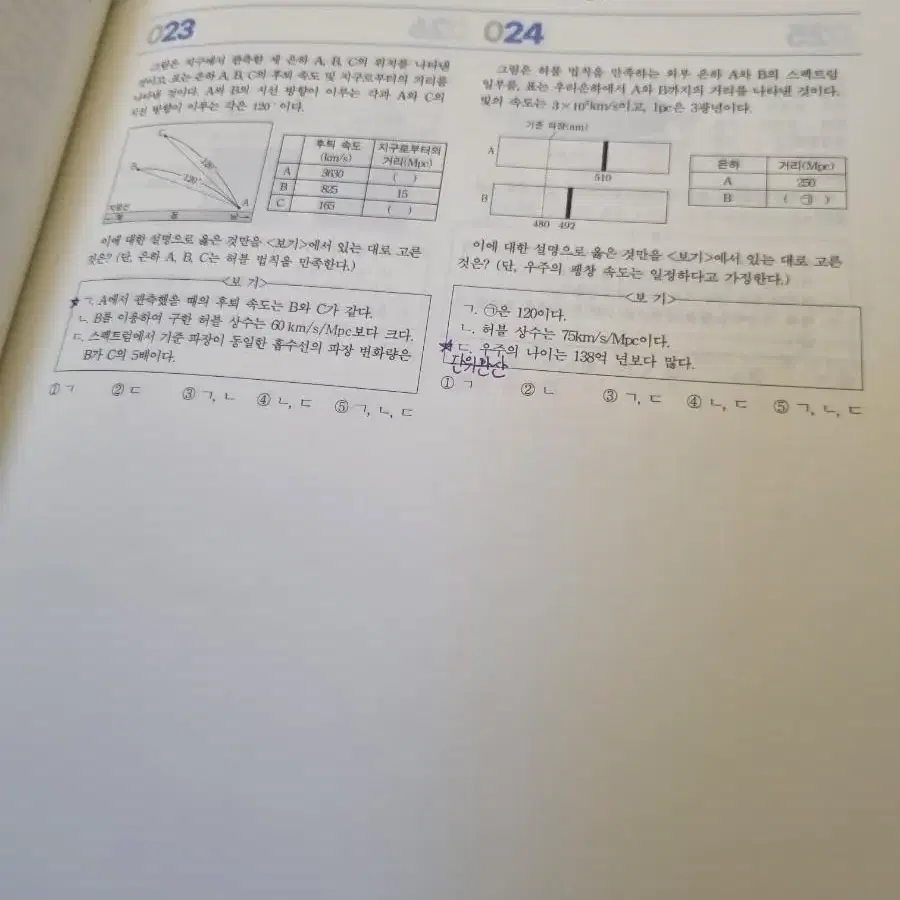 023
그림은 지구에서 관측한 세 은하 A, B, C의 위치를 나타낸
것이고, 표는 은하 A, B, C의 후퇴 속도 및 지구로부터의 거리를
나타낸 것이다. A와 B의 시선 방향이 이루는 각과 A와 C의
시선 방향이 이루는 각은 120°이다.
C
B
A
120°
120°
지평선
동
남
후퇴 속도
(km/s)
지구로부터의
거리(Mpc)
A 3630 ( )
B 825 15
C 165 ( )
이에 대한 설명으로 옳은 것만을 <보기>에서 있는 대로 고른
것은? (단, 은하 A, B, C는 허블 법칙을 만족한다.)
<보 기>
ㄱ. A에서 관측했을 때의 후퇴 속도는 B와 C가 같다.
ㄴ. B를 이용하여 구한 허블 상수는 60 km/s/Mpc보다 크다.
ㄷ. 스펙트럼에서 기준 파장이 동일한 흡수선의 파장 변화량은
B가 C의 5배이다.
① ㄱ ② ㄷ ③ ㄱ, ㄴ ④ ㄴ, ㄷ ⑤ ㄱ, ㄴ, ㄷ
024
그림은 허블 법칙을 만족하는 외부 은하 A와 B의 스펙트럼
일부를, 표는 우리은하에서 A와 B까지의 거리를 나타낸 것이다.
빛의 속도는 3×10⁵km/s이고, 1pc은 3광년이다.
기준 파장(nm)
A
510
B
480 492
은하 거리(Mpc)
A 250
B ( ㉠ )
이에 대한 설명으로 옳은 것만을 <보기>에서 있는 대로 고른
것은? (단, 우주의 팽창 속도는 일정하다고 가정한다.)
<보 기>
ㄱ. ㉠은 120이다.
ㄴ. 허블 상수는 75km/s/Mpc이다.
ㄷ. 우주의 나이는 138억 년보다 많다.
단위환산
① ㄱ ② ㄴ ③ ㄱ, ㄷ ④ ㄴ, ㄷ ⑤ ㄱ, ㄴ, ㄷ